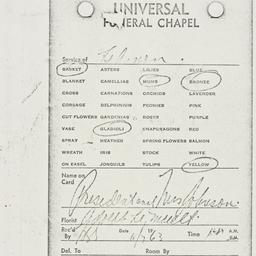 UNIVERSAL
FUNERAL CHAPEL
Service of
BASKET ASTERS LILIES BLUE
BLANKET CAMELLIAS MUMS BRONZE
CROSS CARNATIONS ORCHIDS LAVENDER
CORSAGE DELPHINIUM PEONIES PINK
CUT FLOWERS GARDENIAS ROSES PURPLE
VASE GLADIOLI SNAPDRAGONS RED
SPRAY HEATHER SPRING FLOWERS SALMON
WREATH IRIS STOCK WHITE
ON EASEL JONQUILS TULIPS YELLOW
Name on
Card
President and Mrs Johnson
Florist
Rec'd
By Date 63 Time A.M.
P.M.
Del. To Room By